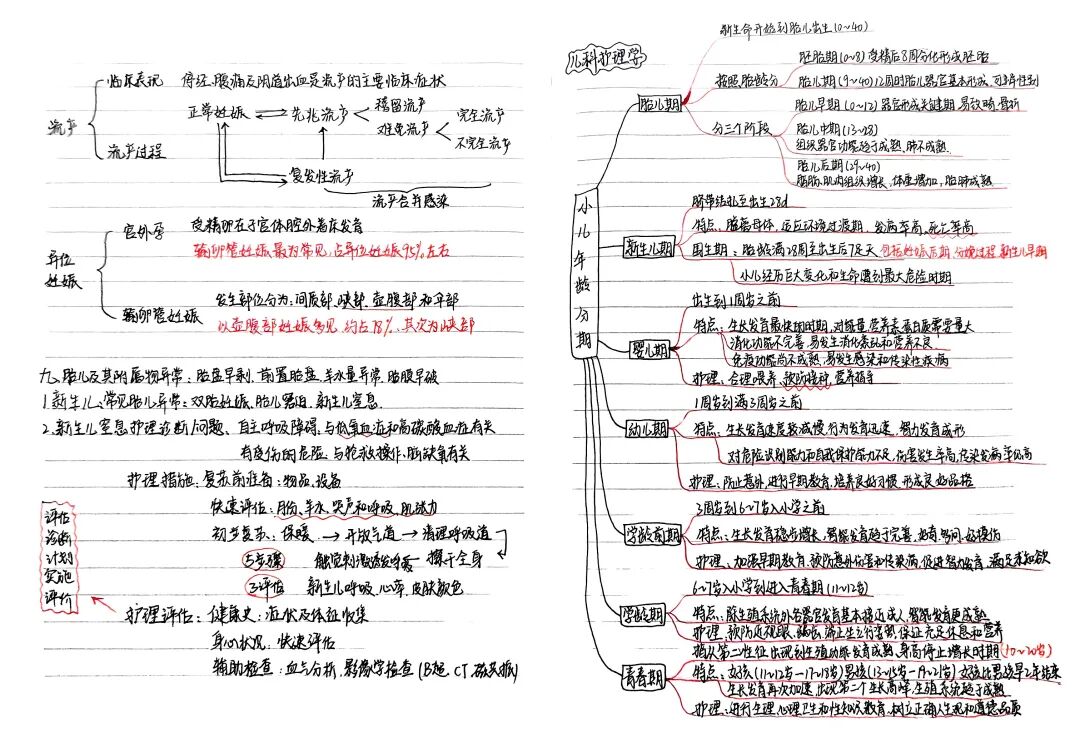 临床表现 停经、腹痛及阴道出血是流产的主要临床症状
流产
正常妊娠 先兆流产 稽留流产
难免流产 完全流产
不完全流产
流产过程
复发性流产
流产合并感染
异位妊娠
宫外孕 受精卵在子宫体腔外着床发育
输卵管妊娠最为常见,占异位妊娠95%左右
输卵管妊娠 发生部位分为:间质部、峡部、壶腹部和伞部
以壶腹部妊娠多见,约占78%,其次为峡部
九、胎儿及其附属物异常:胎盘早剥、前置胎盘、羊水量异常、胎膜早破
1.新生儿常见胎儿异常:双胎妊娠、胎儿窘迫、新生儿窒息
2.新生儿窒息护理诊断/问题、自主呼吸障碍、与低氧血症和高碳酸血症有关
有受伤的危险 与抢救操作、脑缺氧有关
护理措施:复苏前准备:物品、设备
快速评估:月份、羊水、哭声和呼吸、肌张力
初步复苏:保暖→开放气道→清理呼吸道
5步骤 触觉刺激诱发呼吸←擦干全身
3评估 新生儿呼吸、心率、皮肤颜色
评估
诊断
计划
实施
评价
护理评估:健康史:症状及体征收集
身心状况:快速评估
辅助检查:血气分析、影像学检查(B超、CT、磁共振)
儿科护理学
小儿年龄分期
新生命开始到胎儿出生(0~40)
胎儿期
按照胎龄分 胚胎期(0~8)受精后8周分化形成胚胎
胎儿期(9~40)12周时胎儿器官基本形成、可辨性别
分三个阶段 胎儿早期(0~12)器官形成关键期 易致畸、夭折
胎儿中期(13~28)
组织器官功能趋于成熟、肺不成熟
胎儿后期(29~40)
脂肪、肌肉组织增长、体重增加,胎肺成熟
新生儿期
脐带结扎至出生28d
特点:脱离母体,适应环境过渡期,发病率高、死亡率高
围生期:胎龄满28周至出生后7足天 包括妊娠后期、分娩过程、新生儿早期
小儿经历巨大变化和生命遭到最大危险时期
婴儿期
出生到1周岁之前
特点:生长发育最快的时期,对能量、营养素、蛋白质需要量大
消化功能不完善,易发生消化紊乱和营养不良
免疫功能尚不成熟,易发生感染和传染性疾病
护理:合理喂养、预防接种、营养指导
幼儿期
1周岁到满3周岁之前
特点:生长发育速度较减慢,行为发育迅速,智力发育成形
对危险识别能力和自我保护能力不足,伤害发生率高,传染发病率也高
护理:防止意外、进行早期教育、培养良好习惯、形成良好品格
学龄前期
3周岁到6~7岁入小学之前
特点:生长发育稳步增长,智能发育趋于完善,好奇、多问、好模仿
护理:加强早期教育、预防意外伤害和传染病,促进智力发育,满足求知欲
学龄期
6~7岁入小学到进入青春期(11~12岁)
特点:除生殖系统外各器官发育基本接近成人,智能发育更成熟
护理:预防近视眼、龋齿、端正坐立行姿势,保证充足休息和营养
青春期
指从第二性征出现到生殖功能发育成熟、身高停止增长时期(10~20岁)
特点:女孩(11~12岁~17~18岁)男孩(13~15岁~19~21岁)女孩比男孩早2年结束
生长发育再次加速,出现第二个生长高峰,生殖系统趋于成熟
护理:进行生理、心理卫生和性知识教育,树立正确人生观和道德品质